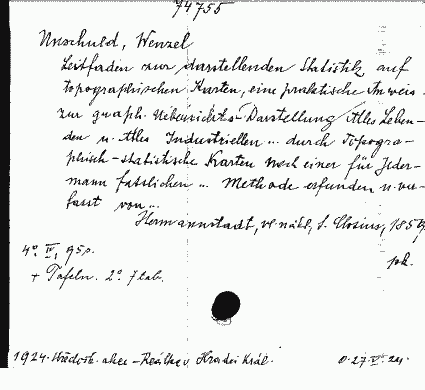 74755
Unschuld, Wenzel
Leitfaden zur darstellenden Statistik auf
topographischen Karten, eine praktische Anweis-
zur graph. Uebersichts-Darstellung Alles Leben-
den u. Alles Industriellen ... durch Topogra-
phisch-statistische Karten nach einer für Jeder-
mann fasslichen ... Methode erfunden u. ver-
fasst von ...
Hermannstadt, S. Closius, 1859
4° IV, 95 p.
+ Tafeln. 2° 7 tab.
1924. Hradci Král.